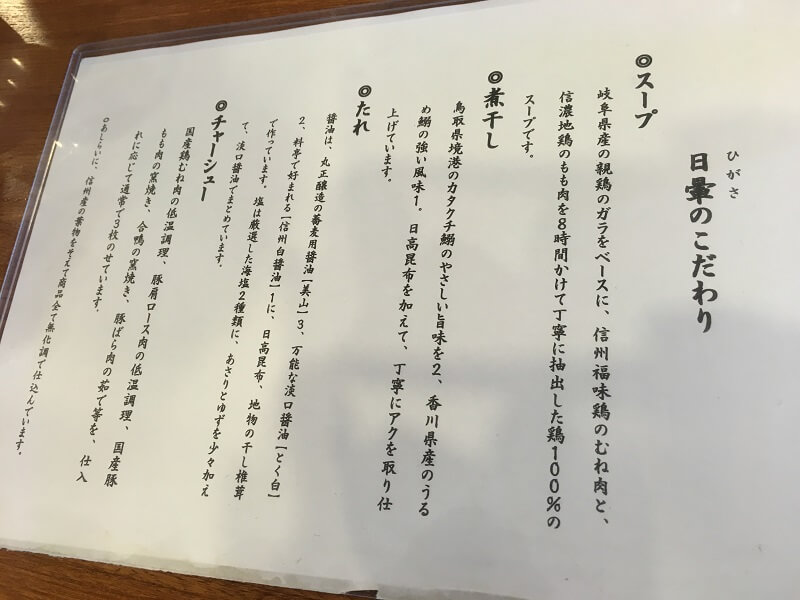 ひがさ
日暈のこだわり
◎スープ
岐阜県産の親鶏のガラをベースに、信州福味鶏のむね肉と、
信濃地鶏のもも肉を8時間かけて丁寧に抽出した鶏100%の
スープです。
◎煮干し
鳥取県境港のカタクチ鰯のやさしい旨味を2、香川県産のうる
め鰯の強い風味1。日高昆布を加えて、丁寧にアクを取り仕
上げています。
◎たれ
醤油は、丸正醸造の蕎麦用醤油【美山】3、万能な淡口醤油【とく白】
2、料亭で好まれる【信州白醤油】1に、日高昆布、地物の干し椎茸
で作っています。塩は厳選した海塩2種類に、あさりとゆずを少々加え
て、淡口醤油でまとめています。
◎チャーシュー
国産鶏むね肉の低温調理、豚肩ロース肉の低温調理、国産豚
もも肉の窯焼き、合鴨の窯焼き、豚ばら肉の茹で等を、仕入
れに応じて通常で3枚のせています。
◎あしらいに、信州産の葉物をそえて商品全て無化調で仕込んでいます。